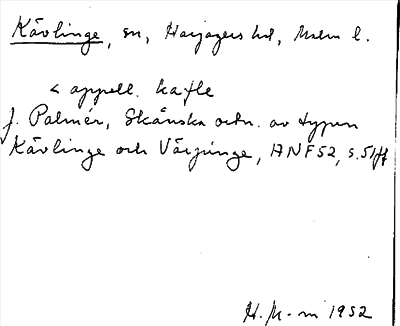 Kävlinge, sn, Harjagers hd, Malm l.
< appell. kafle
J. Palmér, Skånska ortn. av typen
Kävlinge och Värpinge, ANF 52, s. 51ff
H. M-m 1952